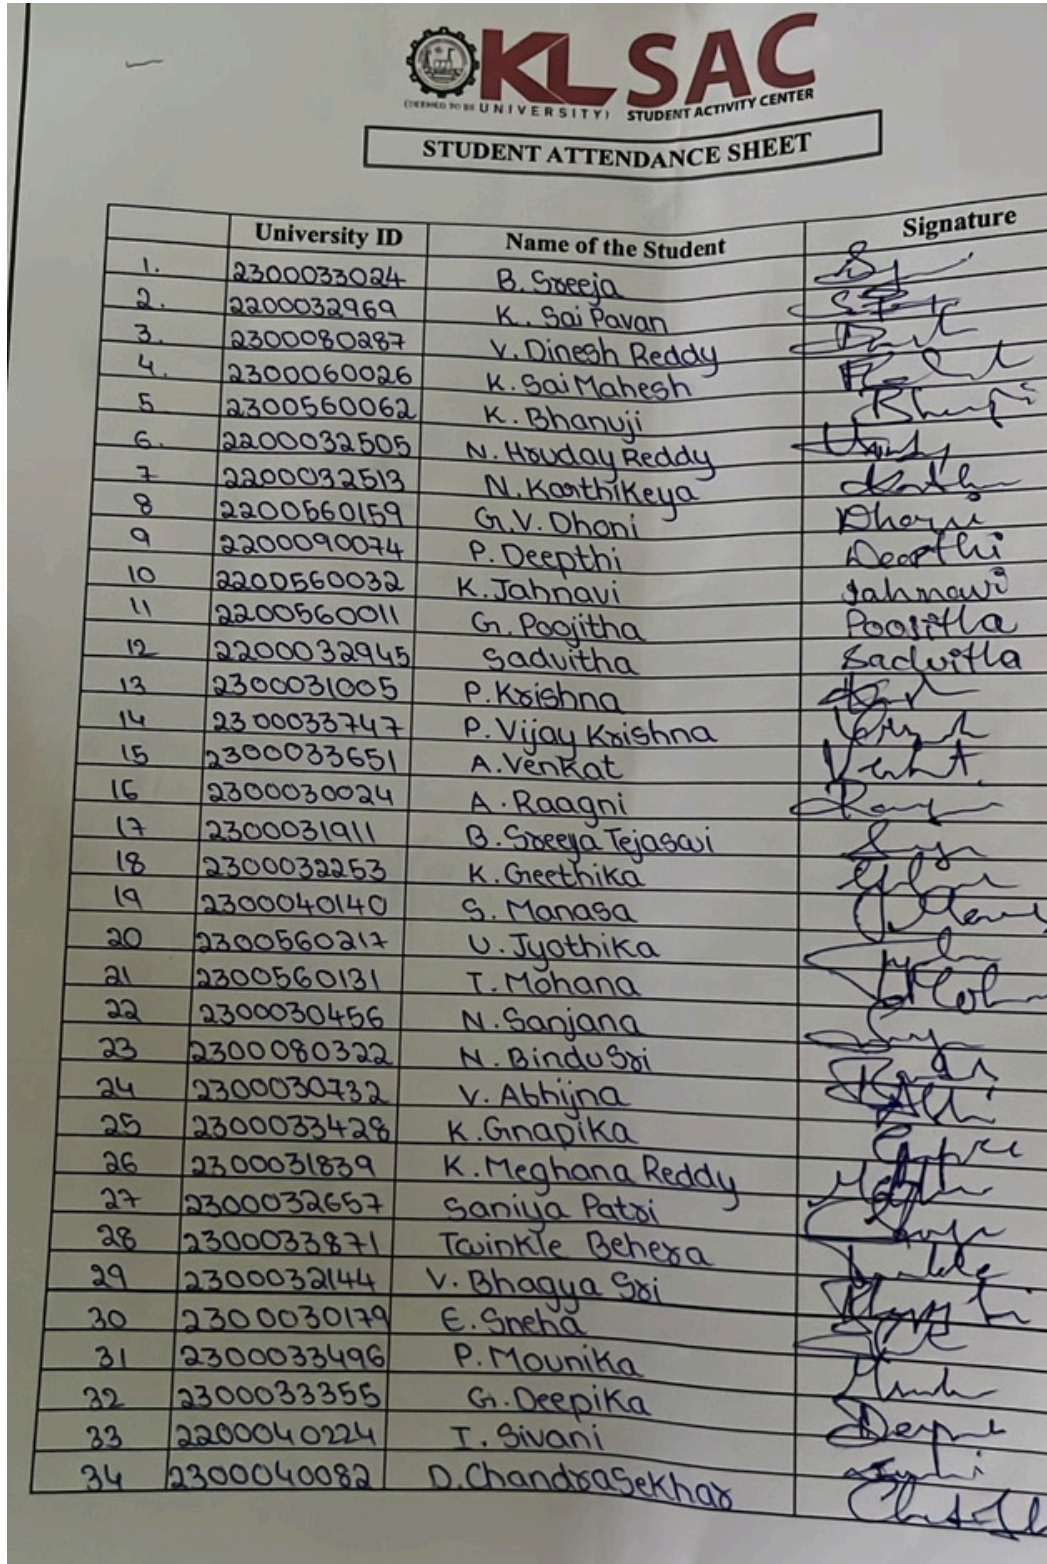 KL SAC
(DEEMED TO BE UNIVERSITY) STUDENT ACTIVITY CENTER
STUDENT ATTENDANCE SHEET
University ID Name of the Student Signature
1. 2300033024 B. Sreeja
2. 2200032969 K. Sai Pavan
3. 2300080287 V. Dinesh Reddy
4. 2300060026 K. Sai Mahesh
5 2300560062 K. Bhanuji
6. 2200032505 N. Hruday Reddy
7 2200032513 N. Karthikeya
8 2200560159 G.V. Dhani
9 2200090074 P. Deepthi Deepthi
10 2200560032 K. Jahnavi Jahnavi
11 2200560011 G. Poojitha Poojitha
12 2200032945 Sadvitha Sadvitha
13 2300031005 P. Krishna
14 2300033747 P. Vijay Krishna
15 2300033651 A. Venkat Venkat
16 2300030024 A. Raagni
17 2300031911 B. Sreeja Tejaswi
18 2300032253 K. Geethika
19 2300040140 S. Manasa
20 2300560217 U. Jyothika
21 2300560131 T. Mohana
22 2300030456 N. Sanjana
23 2300080322 N. Bindu Sri
24 2300030732 V. Abhijna
25 2300033428 K. Gnapika
26 2300031839 K. Meghana Reddy
27 2300032657 Saniya Patri
28 2300033871 Twinkle Behera
29 2300032144 V. Bhagya Sri
30 2300030179 E. Sneha
31 2300033496 P. Mounika
32 2300033355 G. Deepika
33 2200040224 I. Sivani
34 2300040082 D. Chandra Sekhar